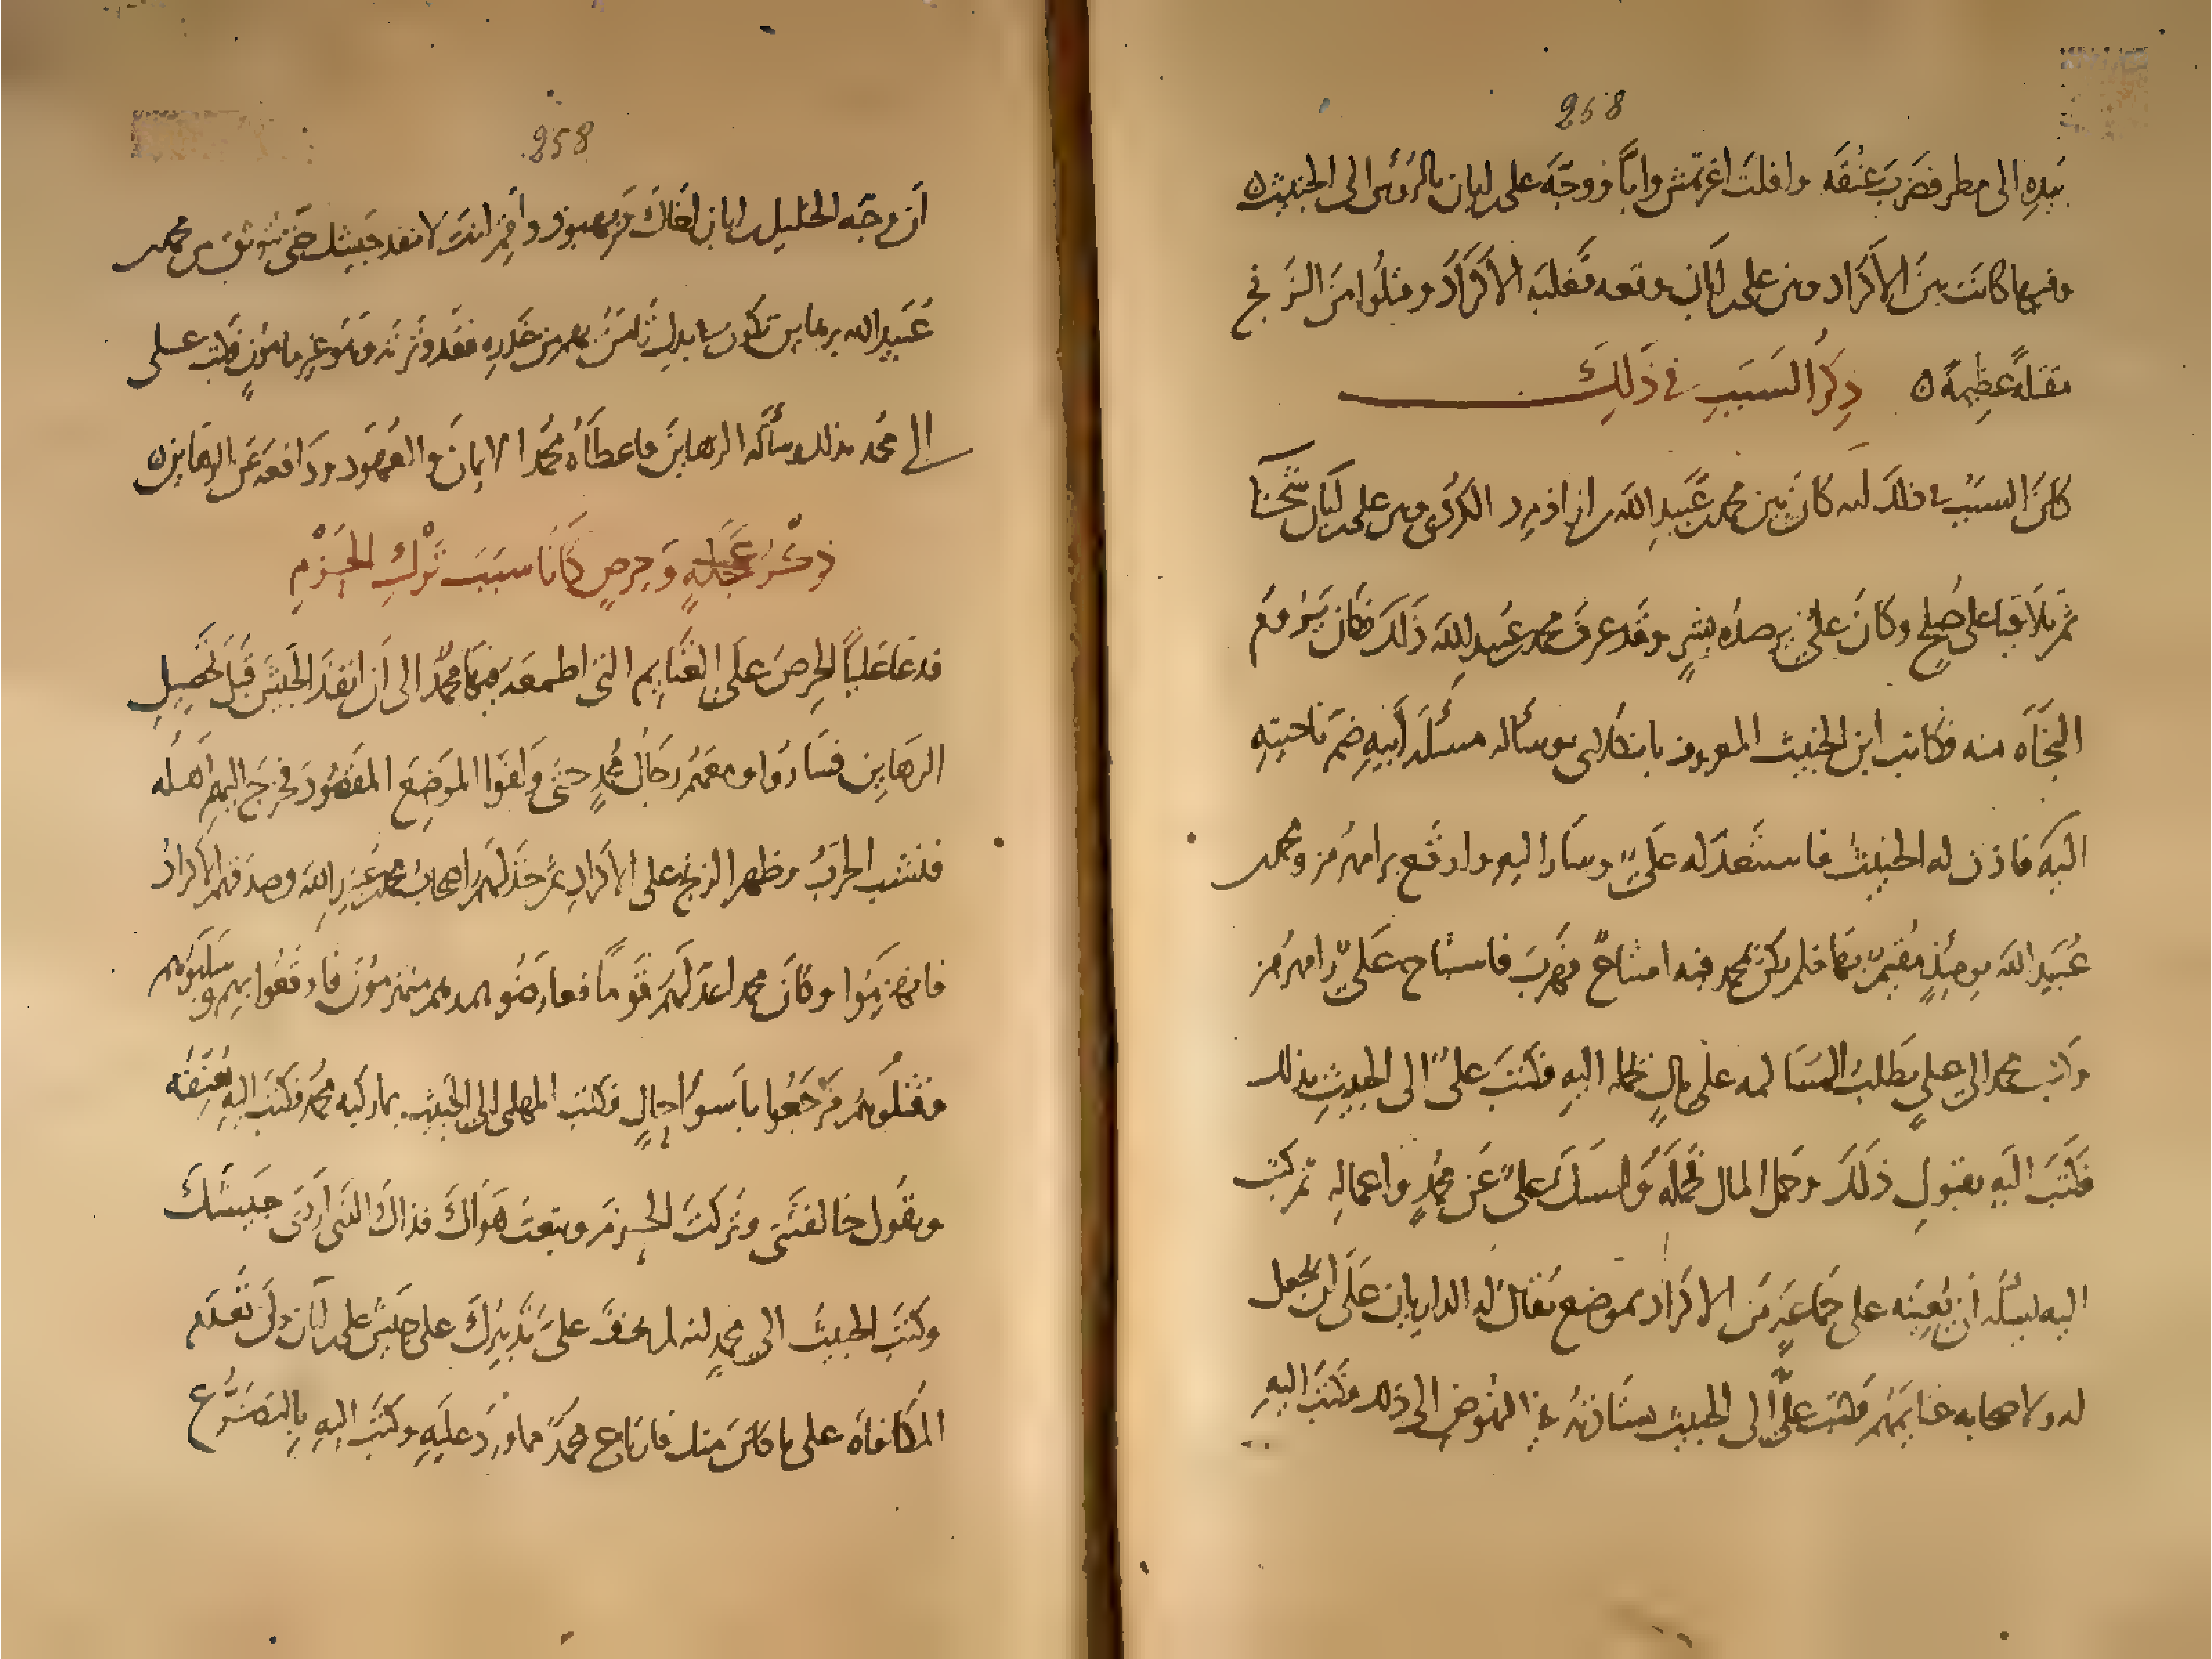 258
بيده الى مطر فضرب عنقه وافلت اغرتمش وابّا ووجّه على بن ابان بالرؤس الى الخبيث ه
وفيها كانت بين الأكراد وبين على بن ابان وقعه فغلبه الأكراد وقتلوا من الزنج
مقتلةً عظيمة ه ذكر السبب فى ذلك
كان السبب فى ذلك انه كان بين محمد بن عبيد الله بن ازاذمرد الكردى وبين على بن ابان شحنا
ثم تلاقيا على صلح وكان علىّ يرصده بشرٍ وقد عرف محمد بن عبيد الله ذلك فكان يروم
النجاه منه فكاتب ابن الخبيث المعروف بانكلاى وسأله مسئلة أبيه ضم ناحيته
اليه فاذن له الخبيث فاستعدّ له علىّ وسار اليه وارتفع برامهرمز ومحمد
عُبيد الله يومئذٍ مقيم بها فلم يكن لمحمد فيه امتناع فهرب فاستباح علىّ رامهرمز
وكتب محمد الى على يطلب المسالمه على مالٍ يحمله اليه فكتب علىّ الى الخبيث بذلك
فكتب اليه بقبول ذلك وحمل المال فحمله وامسك علىّ عن محمدٍ واعماله ثم كتب
اليه يسئله أن يعينه على جماعة من الاكراد بموضع يقال له الداربان على ان يجعل
له ولاصحابه غنايمهم فكتب علىّ الى الخبيث يستأذنه فى النهوض الى ذلك فكتب اليه
258
أن وجّه الخليل بن ابان اخاك وبهبوذ وأقم انت لا تنفذ جيشك حتى تتوثق من محمد
عبيد الله برهاين تكون فى يدك تأمن بهم من غدره فقد وترته وهو غير مامون فكتب على
الى محمد بذلك وسأله الرهاين فاعطاه محمد الايمان والعهود ودافعه عن الرهاين ه
ذكر عجلةٍ وحرصٍ كانا سبب ترك الحزم
فدعا عليّا الحرص على الغنايم التى اطمعه فيها محمّد الى أن انفذ الجيش قبل تحصيل
الرهاين فساروا ومعهم رجال محمدٍ حتى وافوا الموضع المقصود فخرج اليهم اهله
فنشب الحرب وظهر الزنج على الأكراد ثم خذلهم اصحاب محمد بن عبيد الله وصدقهم الاكراد
فانهزموا وكان محمد اعدّ لهم قومًا فعارضوهم وهم منهزمون فاوقعوا بهم وسلبوهم
وقتلوهم فرجعوا باسوأ حالٍ فكتب المهلبى الى الخبيث بما ركبه محمد فكتب اليه يُعنّفه
ويقول خالفتنى وتركت الحزم وتبعت هواك فذاك الذى اردى جيشك
وكتب الخبيث الى محمدٍ انه لم يخف علىّ تدبيرك على جيش على بن ابان ولن تعدم
المكافاه على ما كان منك فارتاع محمد مما ورد عليه وكتب اليه بالتضرّع